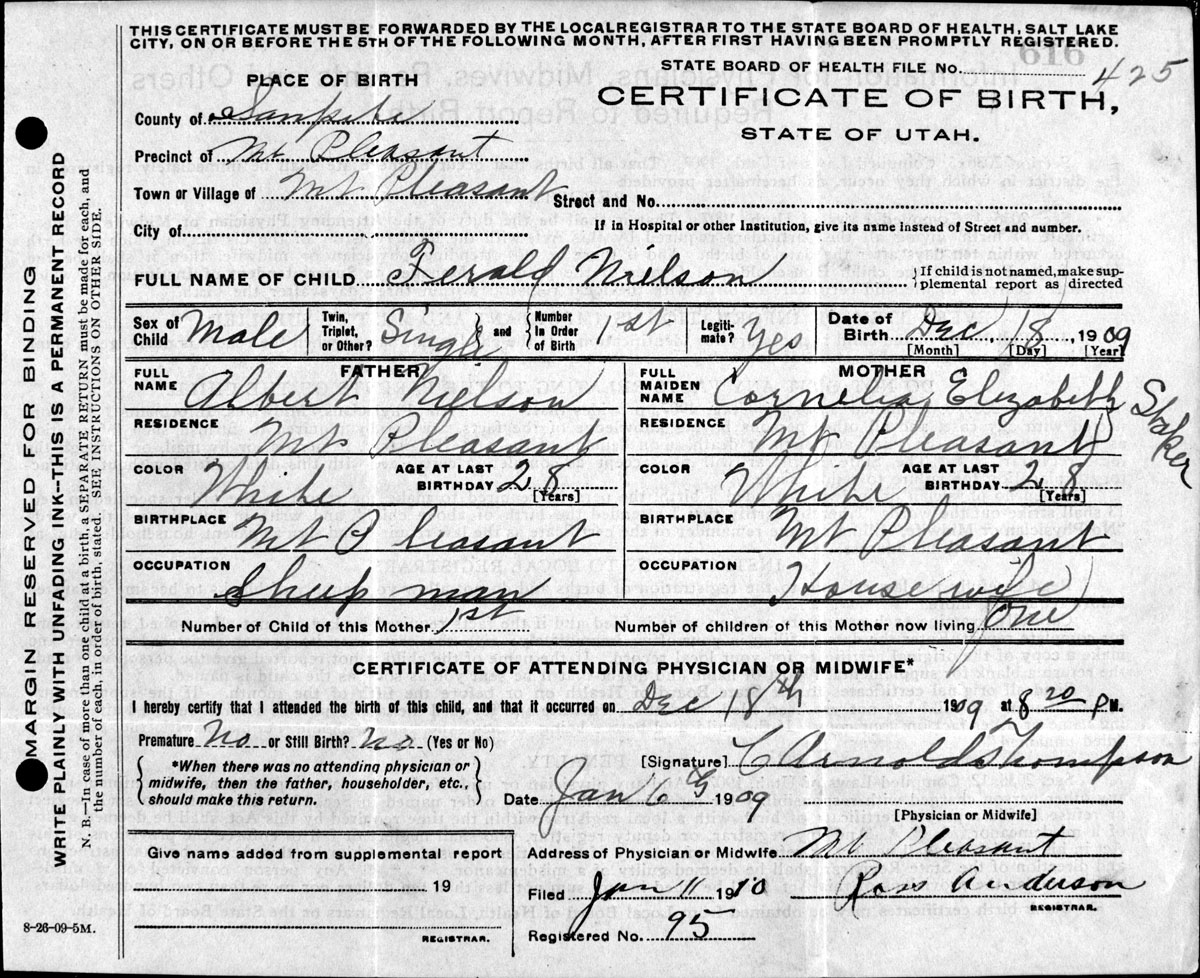 THIS CERTIFICATE MUST BE FORWARDED BY THE LOCALREGISTRAR TO THE STATE BOARD OF HEALTH, SALT LAKE
CITY, ON OR BEFORE THE 5TH OF THE FOLLOWING MONTH, AFTER FIRST HAVING BEEN PROMPTLY REGISTERED.
616
STATE BOARD OF HEALTH FILE No. 425
PLACE OF BIRTH
CERTIFICATE OF BIRTH,
STATE OF UTAH.
County of Sanpete
Precinct of Mt Pleasant
Town or Village of Mt Pleasant Street and No.
City of If in Hospital or other Institution, give its name instead of Street and number.
FULL NAME OF CHILD Ferald Nielson { If child is not named, make sup-
plemental report as directed
Sex of Child Male Twin, Triplet, or Other? Single and { Number In Order of Birth 1st Legiti-mate? Yes Date of Birth Dec. 18, 1909
[Month] [Day] [Year]
FATHER MOTHER
FULL NAME Albert Nielson FULL MAIDEN NAME Cornelia Elizabeth Staker
RESIDENCE Mt Pleasant RESIDENCE Mt Pleasant
COLOR White AGE AT LAST BIRTHDAY 28 [Years] COLOR White AGE AT LAST BIRTHDAY 28 [Years]
BIRTHPLACE Mt Pleasant BIRTHPLACE Mt Pleasant
OCCUPATION Sheep man OCCUPATION Housewife
Number of Child of this Mother 1st Number of children of this Mother now living One
CERTIFICATE OF ATTENDING PHYSICIAN OR MIDWIFE*
I hereby certify that I attended the birth of this child, and that it occurred on Dec 18th 1909 at 8 20 P M.
Premature No or Still Birth? No (Yes or No)
*When there was no attending physician or
midwife, then the father, householder, etc.,
should make this return.
[Signature] C Arnold Thompson
Date Jan 6 1909
[Physician or Midwife]
Give name added from supplemental report
19
REGISTRAR.
Address of Physician or Midwife Mt Pleasant
Filed Jan 11 1910 Ross Anderson
REGISTRAR.
Registered No. 95
8-26-09-5M.
MARGIN RESERVED FOR BINDING
WRITE PLAINLY WITH UNFADING INK--THIS IS A PERMANENT RECORD
N. B.—In case of more than one child at a birth, a SEPARATE RETURN must be made for each, and
the number of each, in order of birth, stated. SEE INSTRUCTIONS ON OTHER SIDE.